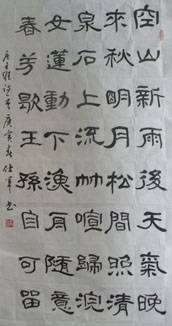 空山新雨後天氣晚
來秋明月松間照清
泉石上流竹喧歸浣
女蓮動下漁舟隨意
春芳歇王孫自可留
唐王維詩 庚寅春 仕軍書